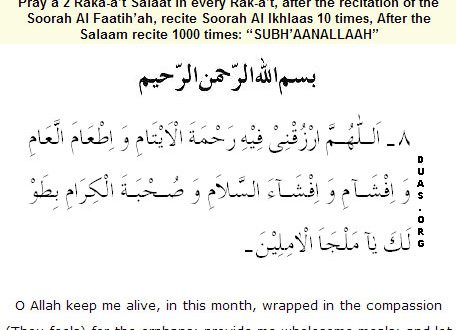 Pray a 2 Raka-a't Salaat in every Rak-a't, after the recitation of the
Soorah Al Faatih'ah, recite Soorah Al Ikhlaas 10 times, After the
Salaam recite 1000 times: “SUBH'AANALLAAH”
بسم الله الرّحمن الرّحيم
٨ـ اَللّٰهُمَّ ارْزُقْنِىْ فِيْهِ رَحْمَةَ الْاَيْتَامِ وَ اِطْعَامَ الَّعَامِ
وَ اِفْشَـاِم وَ اِفْشَـآءَ السَّلَامِ وَ صُحْبَةَ الْكِرَامِ بِطَوْ
لَكَ يَآ مَلْجَاَ الْاٰمِلِيْنَ ـ
DUAS.ORG
O Allah keep me alive, in this month, wrapped in the compassion
(Thou feels) for the orphans; provide me wholesome meals; and let